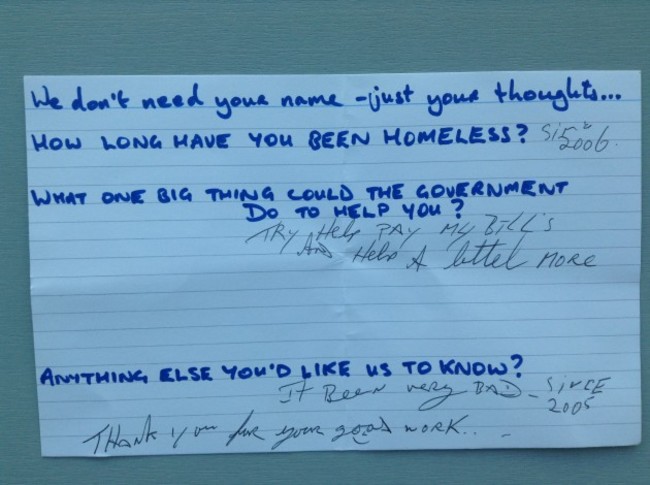 We don't need your name - just your thoughts...
HOW LONG HAVE YOU BEEN HOMELESS? Since
2006.
WHAT ONE BIG THING COULD THE GOVERNMENT
DO TO HELP YOU?
TRY Help PAY My BILL's
AND Help A littel MORE
ANYTHING ELSE YOU'D LIKE US TO KNOW?
IT BEEN very BAD - SINCE
2005
THANK you for your good work...